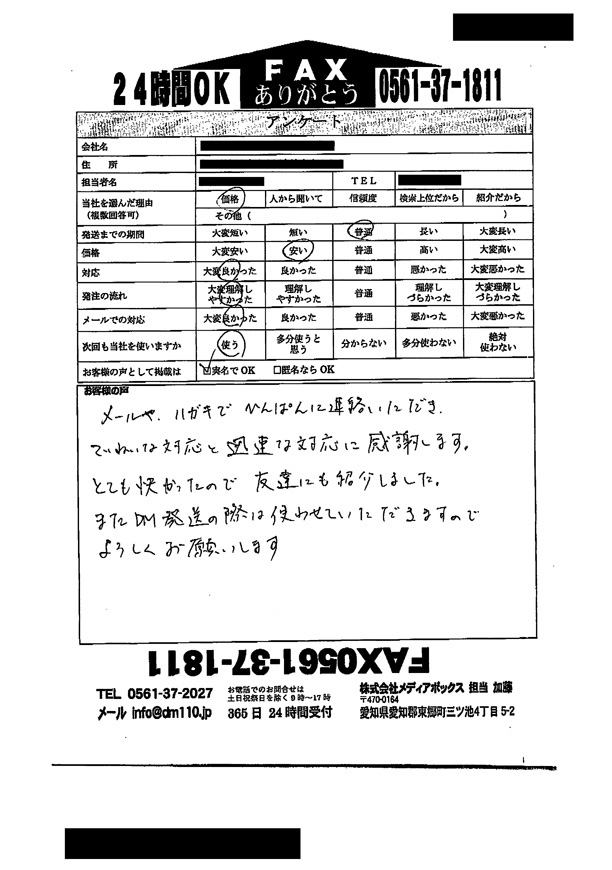 24時間OK FAX ありがとう 0561-37-1811
アンケート
会社名
住 所
担当者名 TEL
当社を選んだ理由（複数回答可） 価格 人から聞いて 信頼度 検索上位だから 紹介だから
その他（ ）
発送までの期間 大変短い 短い 普通 長い 大変長い
価格 大変安い 安い 普通 高い 大変高い
対応 大変良かった 良かった 普通 悪かった 大変悪かった
発注の流れ 大変理解しやすかった 理解しやすかった 普通 理解しづらかった 大変理解しづらかった
メールでの対応 大変良かった 良かった 普通 悪かった 大変悪かった
次回も当社を使いますか 使う 多分使うと思う 分からない 多分使わない 絶対使わない
お客様の声として掲載は ☑実名でOK ☐匿名ならOK
お客様の声
メールや、ハガキで ひんぱんに連絡いただき、
ていねいな対応と 迅速な対応に 感謝します。
とても 快かったので 友達にも紹介しました。
またDM発送の際は使わせていただきますので
よろしくお願いします
FAX0561-37-1811
TEL 0561-37-2027 お電話でのお問合せは 株式会社メディアボックス 担当 加藤
土日祝祭日を除く9時～17時 〒470-0164
メール info@dm110.jp 365日 24時間受付 愛知県愛知郡東郷町三ツ池4丁目5-2